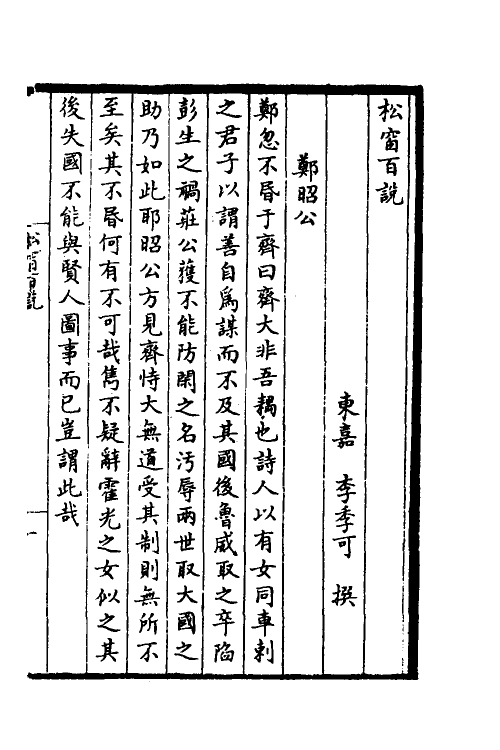 松窗百說
東嘉 李季可 撰
鄭昭公
鄭忽不昏于齊曰齊大非吾耦也詩人以有女同車刺
之君子以謂善自爲謀而不及其國後魯威取之卒陷
彭生之禍莊公獲不能防閑之名汚辱兩世取大國之
助乃如此耶昭公方見齊恃大無道受其制則無所不
至矣其不昏何有不可哉雋不疑辭霍光之女似之其
後失國不能與賢人圖事而已豈謂此哉
松窗百說
一